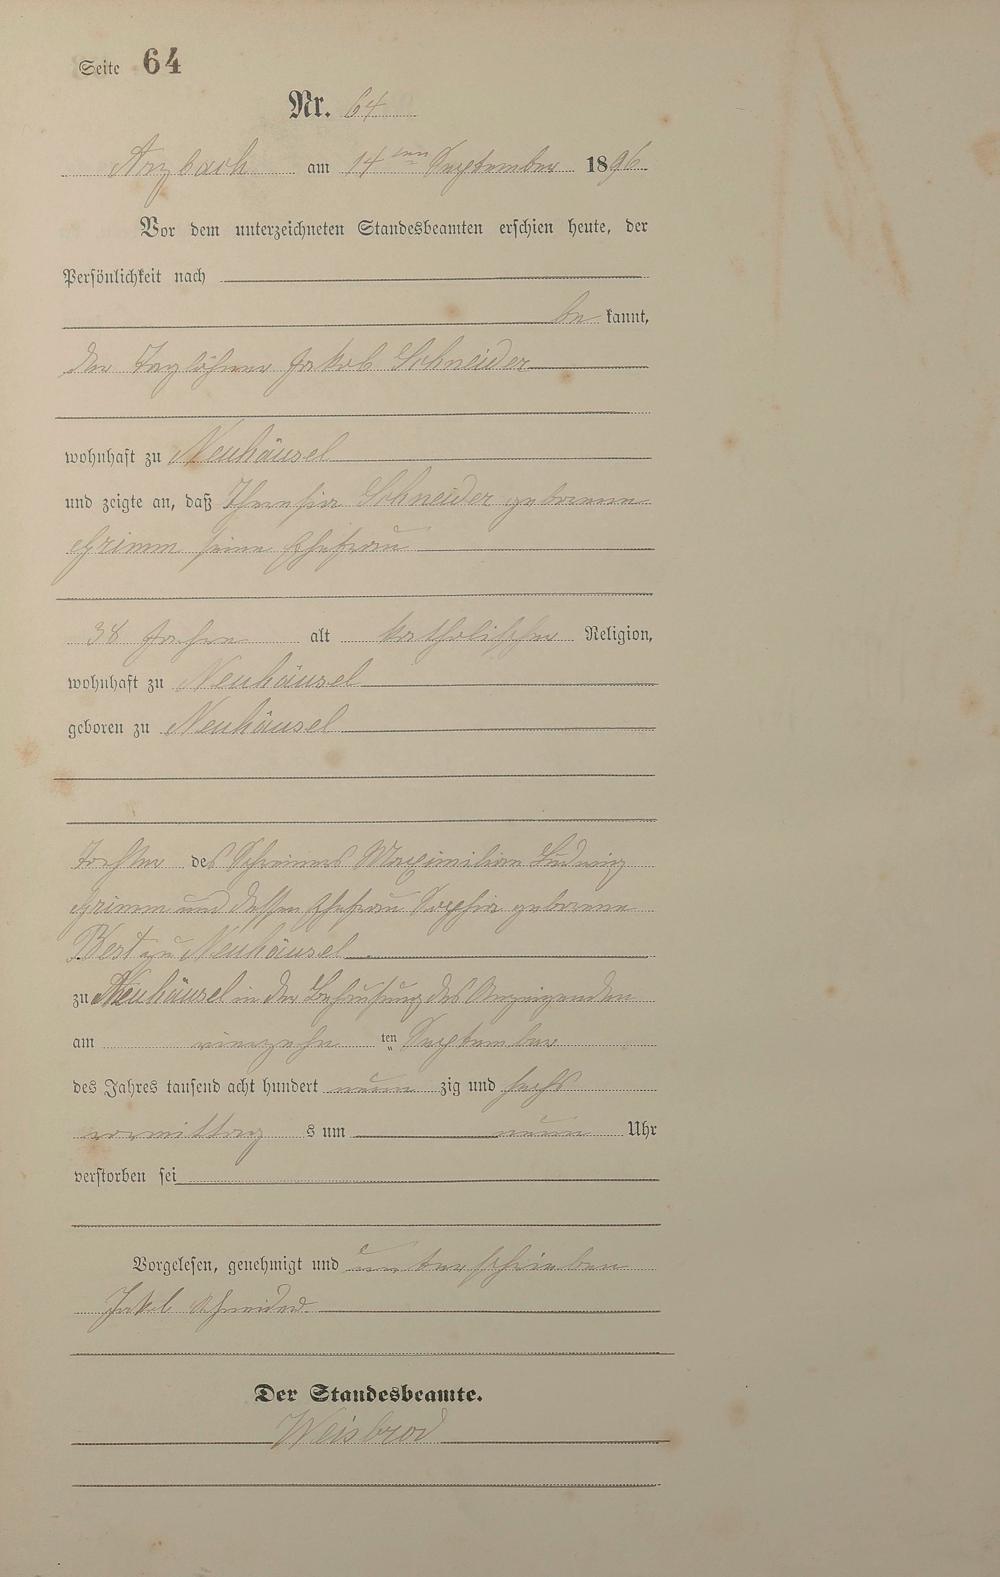 Seite 64
Nr. 64
Arzbach am 14ten September 1896
Vor dem unterzeichneten Standesbeamten erschien heute, der
Persönlichkeit nach
be kannt,
der Taglöhner Jakob Schneider
wohnhaft zu Neuhäusel
und zeigte an, daß Theresia Schneider geborene
Grimm seine Ehefrau
38 Jahre alt katholischer Religion,
wohnhaft zu Neuhäusel
geboren zu Neuhäusel
Tochter des Schreiners Maximilian Ludwig
Grimm und dessen Ehefrau Sophia geborene
Best zu Neuhäusel
zu Neuhäusel in der Behausung des Anzeigenden
am vierzehn ten September
des Jahres tausend acht hundert neun zig und sechs
vormittag s um neun Uhr
verstorben sei
Vorgelesen, genehmigt und unterschrieben
Jakob Schneider
Der Standesbeamte.
Weisbrod